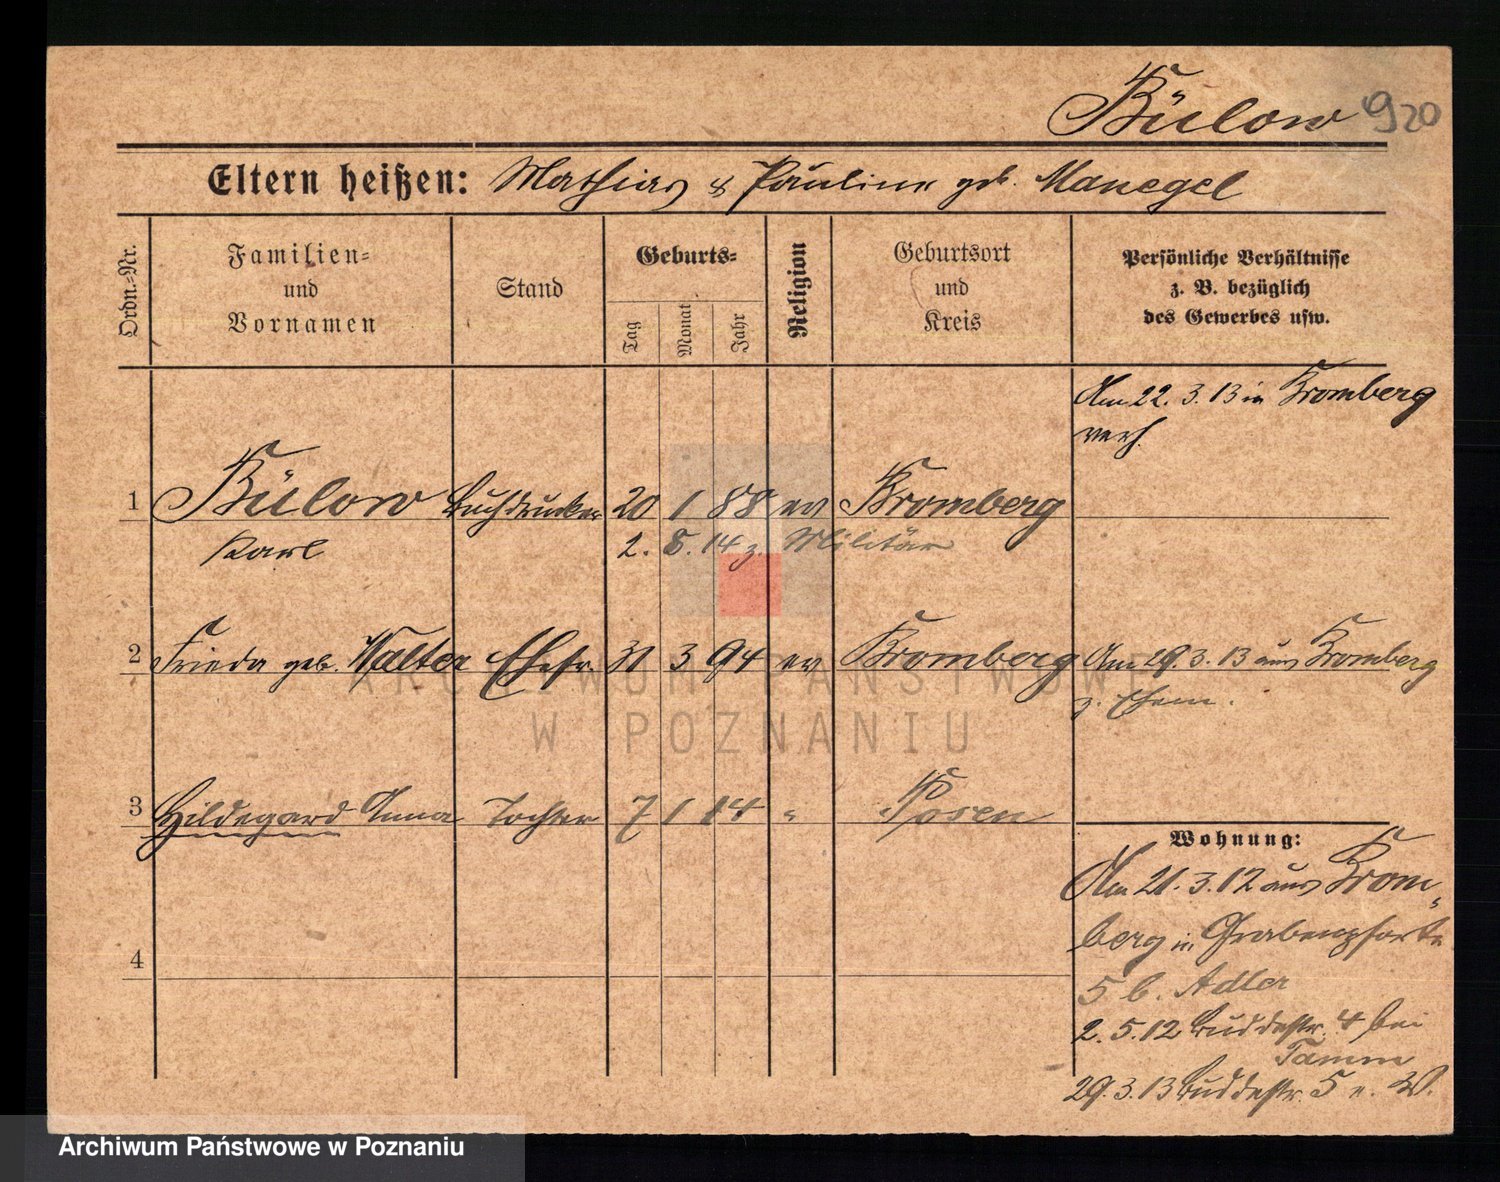 Bülow 920
Eltern heißen: Mathias & Pauline geb. Manegel
Ordn.=Nr.
Familien=
und
Vornamen
Stand
Geburts=
Tag
Monat
Jahr
Religion
Geburtsort
und
Kreis
Persönliche Verhältnisse
z. B. bezüglich
des Gewerbes usw.
Am 22. 3. 13 in Bromberg
verh.
1 Bülow Buchdrucker 20 1 88 ev Bromberg
Karl 2. 8. 14 z. Militär
2 Frieda geb. Walter Ehefr. 31 3 94 ev Bromberg Am 29. 3. 13 aus Bromberg
z. Ehem.
3 Hildegard Anna Tochter 7 1 14 " Posen
4
Wohnung:
Am 21. 3. 12 aus Brom-
berg in Grabenpforte
5 b. Adler
2. 5. 12 Buddestr. 4 bei
Tamm
29. 3. 13 Buddestr. 5 e. W.
ARCHIWUM PAŃSTWOWE
W POZNANIU
Archiwum Państwowe w Poznaniu